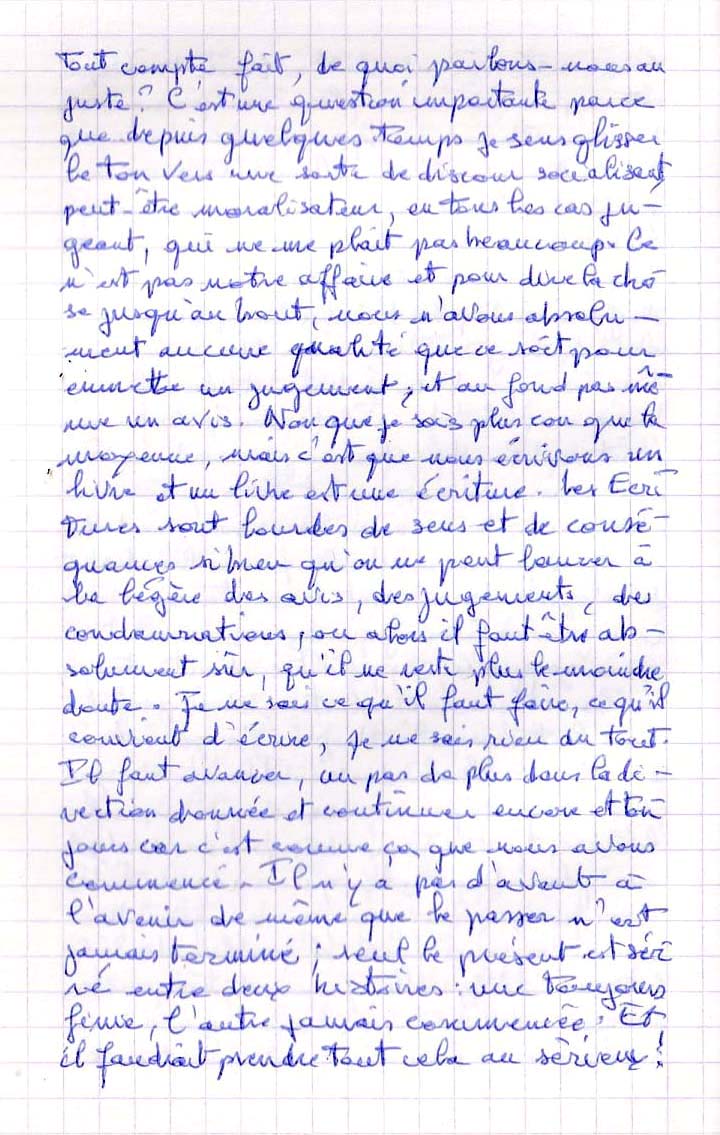 Tout compte fait, de quoi parlons-nous au
juste? C'est une question importante parce
que depuis quelques temps je sens glisser
le ton vers une sorte de discour socialisant,
peut-être moralisateur, en tous les cas ju-
geant, qui ne me plait pas beaucoup. Ce
n'est pas notre affaire et pour dire la cho
se jusqu'au bout, nous n'avons absolu-
ment aucune qualité que ce soit pour
emettre un jugement, et au fond pas mê-
me un avis. Non que je sois plus con que la
moyenne, mais c'est que nous écrivons un
livre et un livre est une écriture. Les Ecri
tures sont lourdes de sens et de consé-
quances si bien qu'on ne peut lancer à
la légère des avis, des jugements, des
condamnations, ou alors il faut être ab-
solument sûr, qu'il ne reste plus le moindre
doute. Je ne sais ce qu'il faut faire, ce qu'il
convient d'écrire, je ne sais rien du tout.
Il faut avancer, un pas de plus dans la di-
rection donnée et continuer encore et tou
jours car c'est comme ça que nous avons
commencé. Il n'y a pas d'avant à
l'avenir de même que le passer n'est
jamais terminé; seul le présent est sér
ré entre deux histoires: une toujours
finie, l'autre jamais commencée. Et
il faudrait prendre tout cela au sérieux!